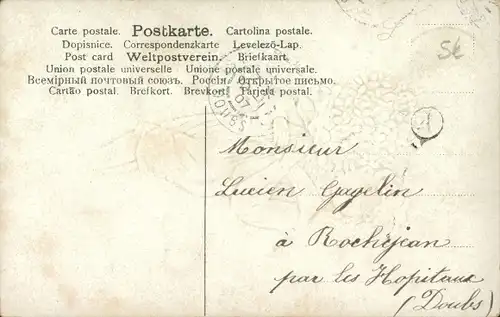 Carte postale. Postkarte. Cartolina postale.
Dopisnice. Correspondenzkarte Levelező-Lap.
Post card Weltpostverein. Briefkaart.
Union postale universelle Unione postale universale.
Всемірный почтовый союзъ. Россія Открытое письмо.
Cartão postal. Brefkort. Brevkort. Tarjeta postal.
Sk
Monsieur
Lucien Gagelin
à Rochejean
par les Hopitaux
(Doubs)